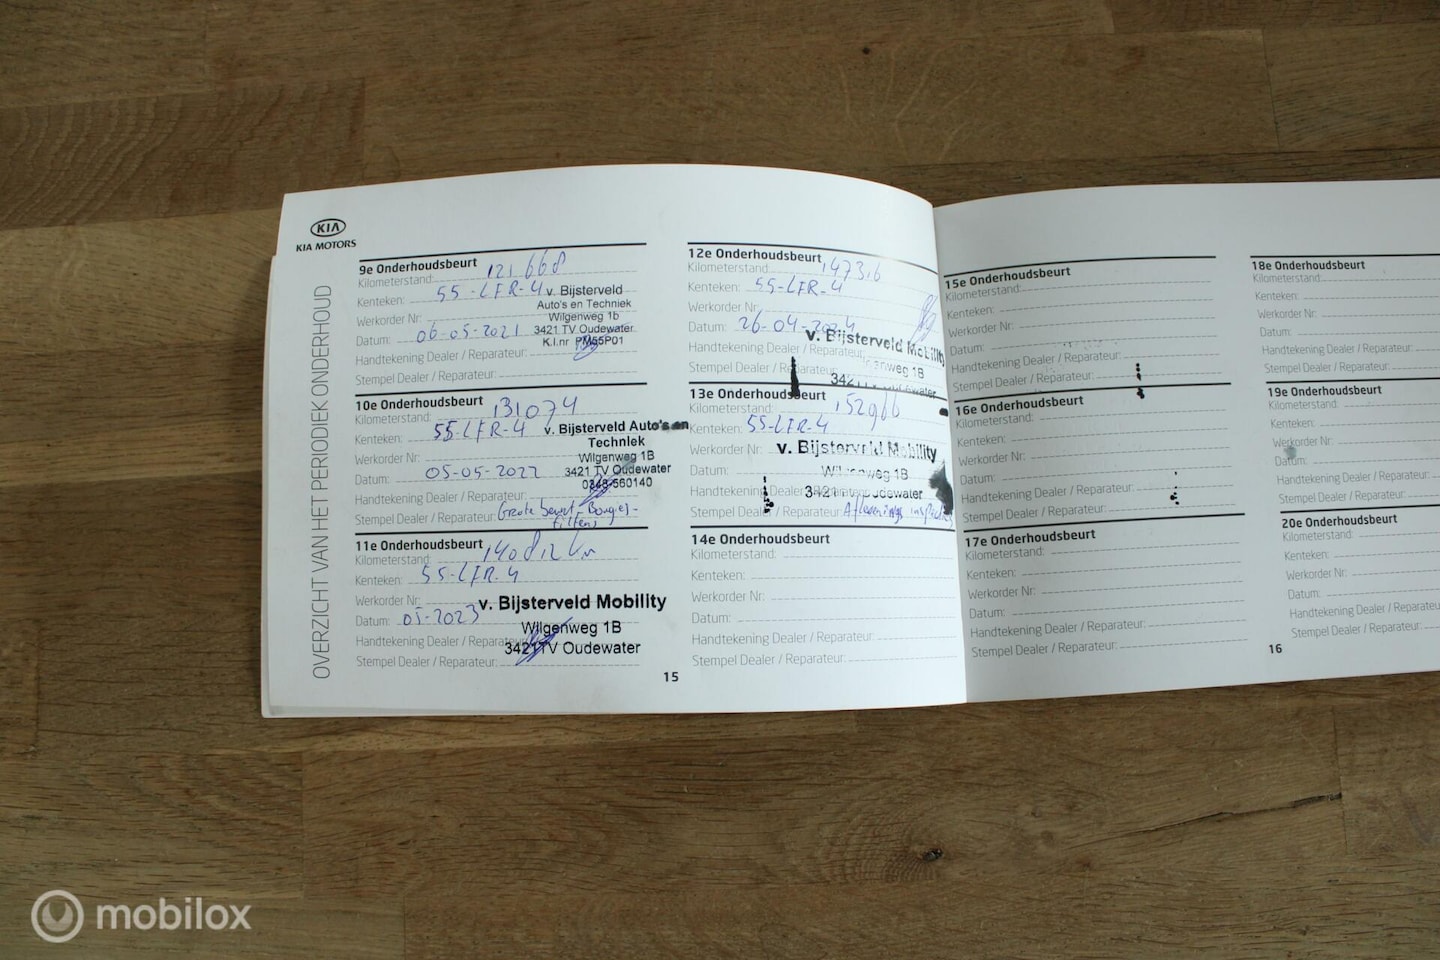 KIA
KIA MOTORS
OVERZICHT VAN HET PERIODIEK ONDERHOUD
9e Onderhoudsbeurt
Kilometerstand: 121668
Kenteken: 55-LFR-4
v. Bijsterveld
Auto's en Techniek
Werkorder Nr:
Wilgenweg 1b
Datum: 06-05-2021
3421 TV Oudewater
K.I.nr PM55P01
Handtekening Dealer / Reparateur:
Stempel Dealer / Reparateur:
10e Onderhoudsbeurt
Kilometerstand: 131074
Kenteken: 55-LFR-4
v. Bijsterveld Auto's en
Techniek
Werkorder Nr:
Wilgenweg 1B
Datum: 05-05-2022
3421 TV Oudewater
0348-560140
Handtekening Dealer / Reparateur:
Stempel Dealer / Reparateur: Grote beurt Bougies-
filters
11e Onderhoudsbeurt
Kilometerstand: 140812 km
Kenteken: 55-LFR-4
Werkorder Nr:
v. Bijsterveld Mobility
Datum: 05-2023
Wilgenweg 1B
Handtekening Dealer / Reparateur:
3421TV Oudewater
Stempel Dealer / Reparateur:
15
12e Onderhoudsbeurt
Kilometerstand: 147316
Kenteken: 55-LFR-4
Werkorder Nr:
Datum: 26-04-2024
v. Bijsterveld Mobility
Handtekening Dealer / Reparateur:
1B
Stempel Dealer / Reparateur:
Oudewater
13e Onderhoudsbeurt
Kilometerstand: 152966
Kenteken: 55-LFR-4
Werkorder Nr:
v. Bijsterveld Mobility
Datum:
Wilgenweg 1B
Handtekening Dealer / Reparateur:
Oudewater
Stempel Dealer / Reparateur: Afleverings
14e Onderhoudsbeurt
Kilometerstand:
Kenteken:
Werkorder Nr:
Datum:
Handtekening Dealer / Reparateur:
Stempel Dealer / Reparateur:
15e Onderhoudsbeurt
Kilometerstand:
Kenteken:
Werkorder Nr:
Datum:
Handtekening Dealer / Reparateur:
Stempel Dealer / Reparateur:
16e Onderhoudsbeurt
Kilometerstand:
Kenteken:
Werkorder Nr:
Datum:
Handtekening Dealer / Reparateur:
Stempel Dealer / Reparateur:
17e Onderhoudsbeurt
Kilometerstand:
Kenteken:
Werkorder Nr:
Datum:
Handtekening Dealer / Reparateur:
Stempel Dealer / Reparateur:
18e Onderhoudsbeurt
Kilometerstand:
Kenteken:
Werkorder Nr:
Datum:
Handtekening Dealer / Reparateur:
Stempel Dealer / Reparateur:
19e Onderhoudsbeurt
Kilometerstand:
Kenteken:
Werkorder Nr:
Datum:
Handtekening Dealer / Reparateur:
Stempel Dealer / Reparateur:
20e Onderhoudsbeurt
Kilometerstand:
Kenteken:
Werkorder Nr:
Datum:
Handtekening Dealer / Reparateur:
Stempel Dealer / Reparateur:
16
mobilox